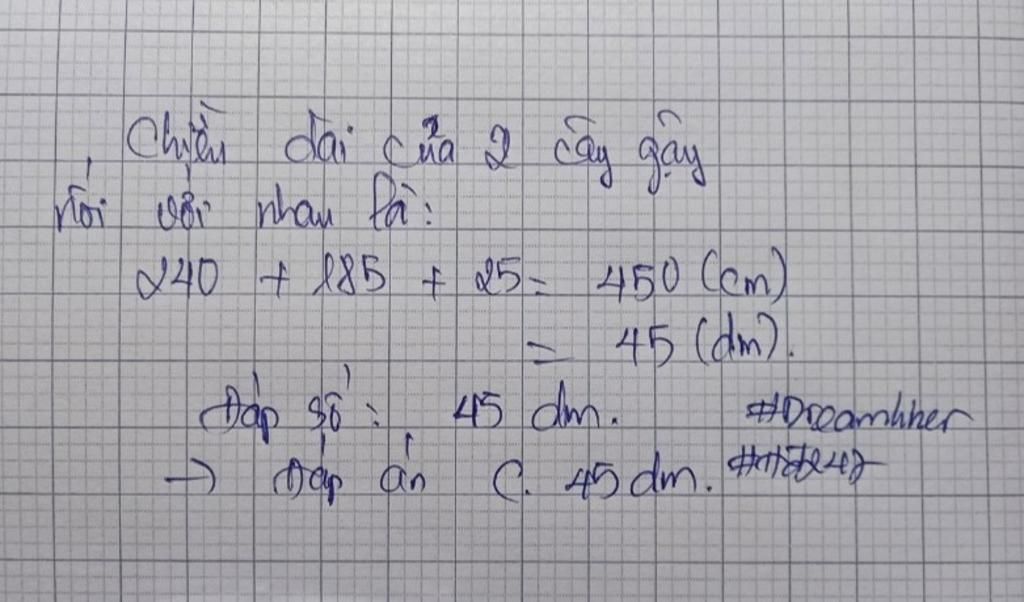 Chiều dài của 2 cây gậy
nối với nhau là:
240 + 185 + 25 = 450 (cm)
= 45 (dm).
Đáp số: 45 dm. #Dreamhher
→ Đáp án C. 45 dm.